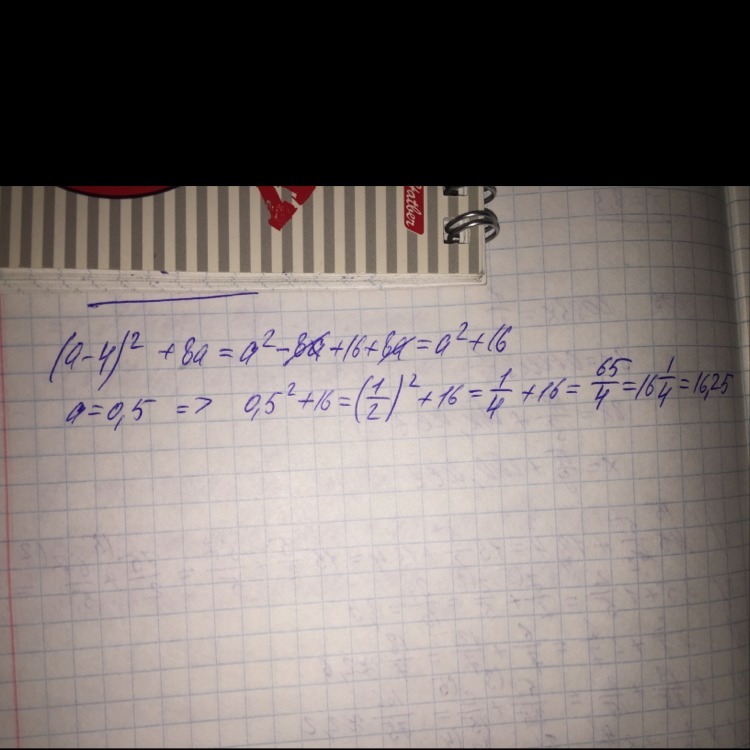 Hatber
(a-4)² + 8a = a² - 8a + 16 + 8a = a² + 16
a = 0,5 => 0,5² + 16 = (1/2)² + 16 = 1/4 + 16 = 65/4 = 16 1/4 = 16,25